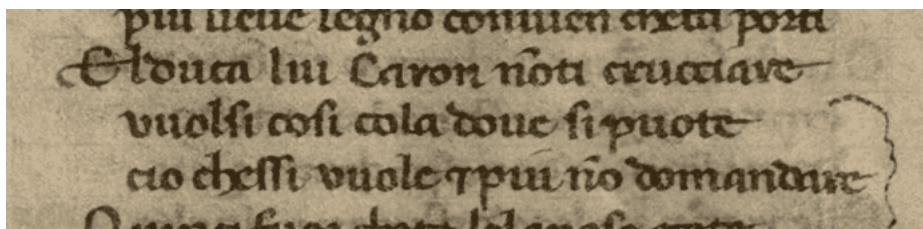 piu lieue legno conuien chetti porti
Elduca lui Caron nõti crucciare
vuolsi cosi cola doue si puote
cio chessi vuole ⁊piu nõ domandare